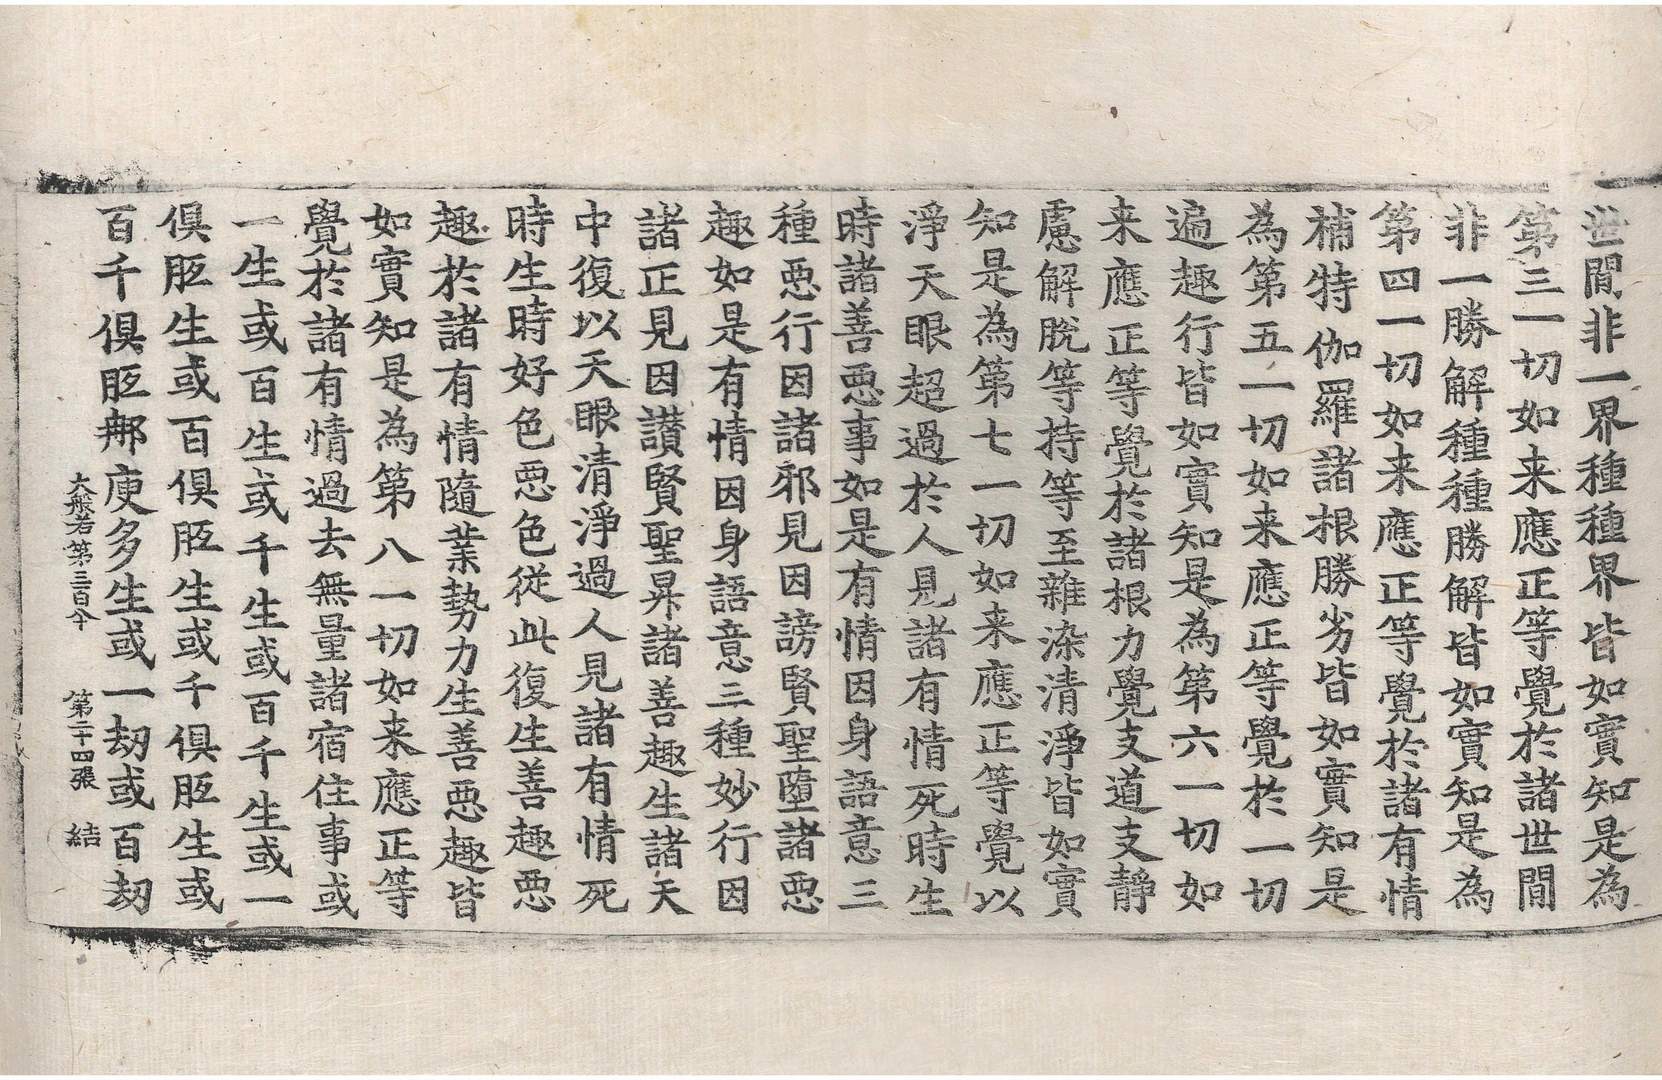 世間非一界種種界皆如實知是為
第三一切如来應正等覺於諸世間
非一勝解種種勝解皆如實知是為
第四一切如来應正等覺於諸有情
補特伽羅諸根勝劣皆如實知是
為第五一切如来應正等覺於一切
遍趣行皆如實知是為第六一切如
来應正等覺於諸根力覺支道支靜
慮解脫等持等至雜染清淨皆如實
知是為第七一切如来應正等覺以
淨天眼超過於人見諸有情死時生
時諸善惡事如是有情因身語意三
種惡行因諸邪見因謗賢聖墮諸惡
趣如是有情因身語意三種妙行因
諸正見因讃賢聖昇諸善趣生諸天
中復以天眼清淨過人見諸有情死
時生時好色惡色從此復生善趣惡
趣於諸有情隨業勢力生善惡趣皆
如實知是為第八一切如来應正等
覺於諸有情過去無量諸宿住事或
一生或百生或千生或百千生或一
俱胝生或百俱胝生或千俱胝生或
百千俱胝那庾多生或一劫或百劫
大般若第三百令 第二十四張 結